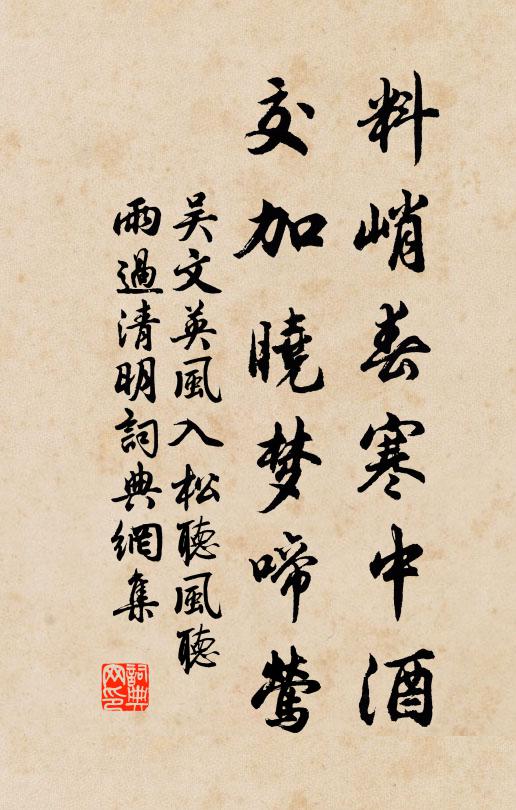 料峭春寒中酒
交加曉梦啼鶯
吴文英風入松聽風聽
雨過清明詞典網集
詞典
网印